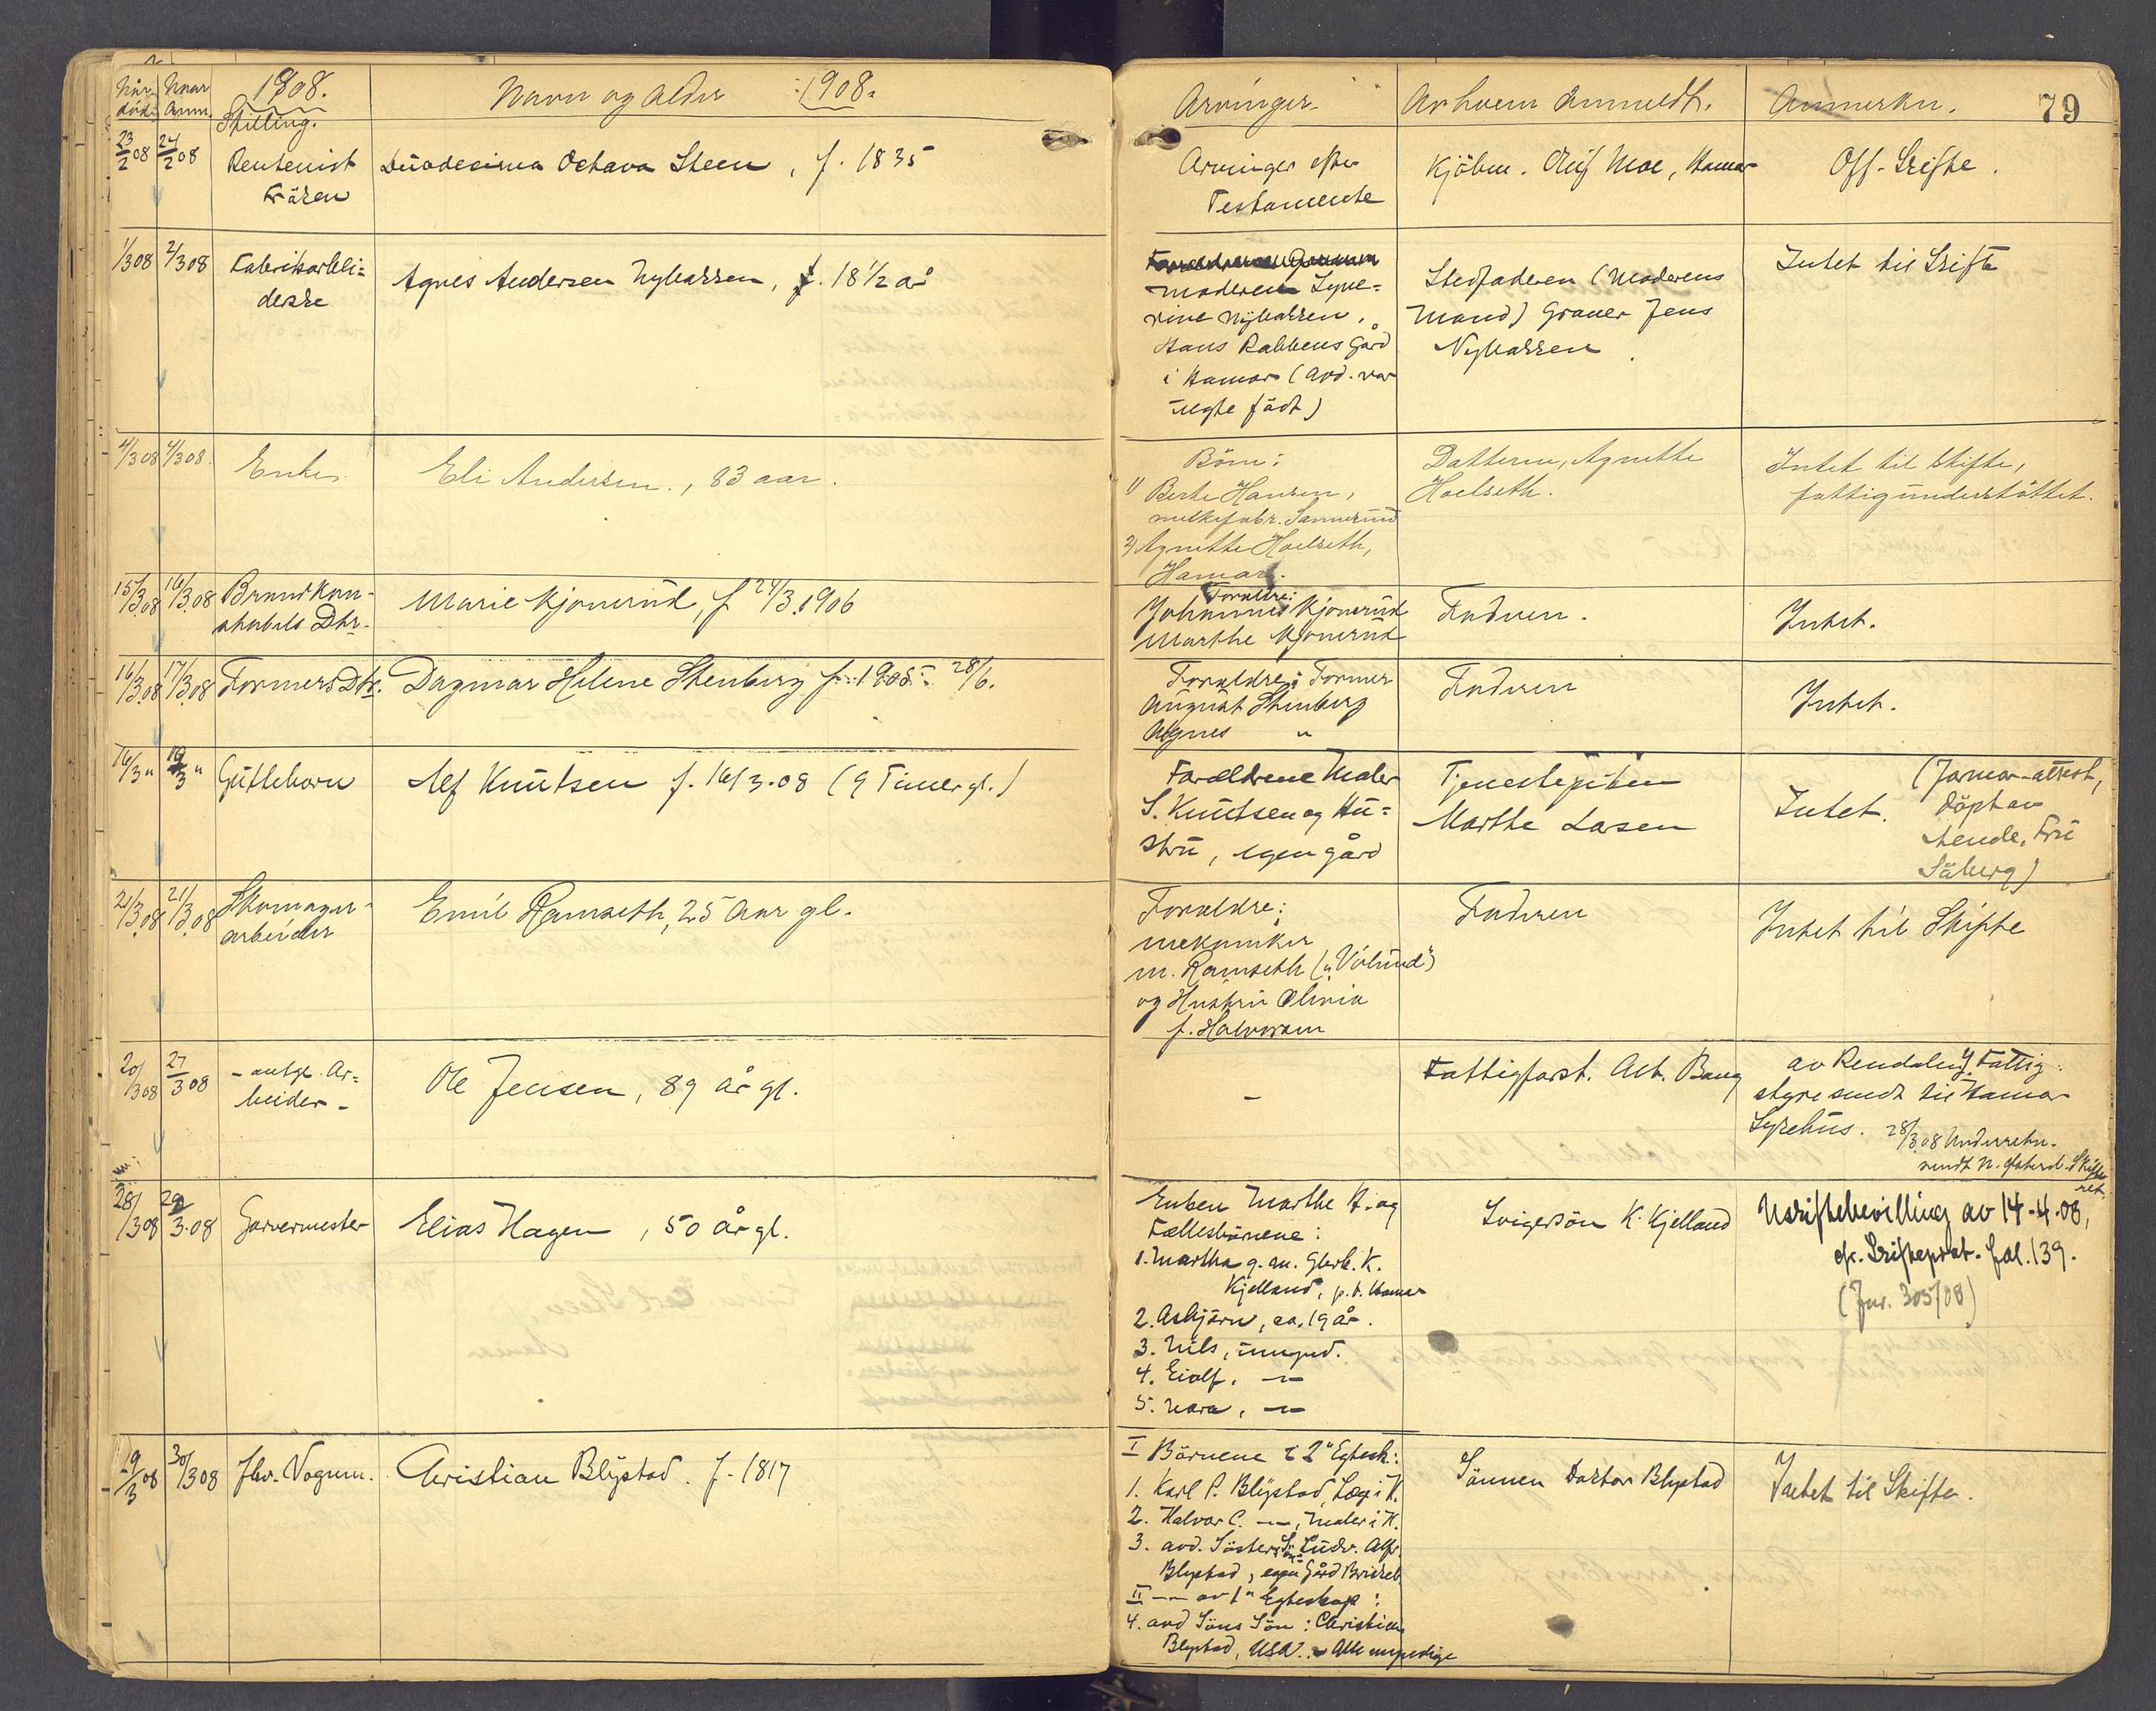 Når død. Naar Anm. 1908. Stilling. Navn og Alder 1908. Arvinger. Av hvem Anmeldt. Anmerkn. 79
23/2 08 24/2 08 Rentenist Frøken Duodesima Octava Steen, f. 1835
Arvinger efter
Testamente
Kjøbm. Moe, Hamar
Off. Skifte.
1/3 08 2/3 08 Fabrikarbei=
derske
Agnes Andersen Nybakken, f. 18 1/2 år
Moderen
Nybakken,
Hans Rabbens Gård
i Hamar (avd. var
uegte født)
Stedfaderen (Moderens
Mand) Graver Jens
Nybakken.
Intet til Skifte
4/3 08 4/3 08. Enke. Eli Andersen., 83 aar.
Børn:
1) Berte Hansen,
melkefabr. Sannerud
2) Agnette Hoelseth,
Hamar.
Datteren, Agnette
Hoelseth.
Intet til skifte,
fattigunderstøttet.
15/3 08 16/3 08 Brandkon-
stabels Dtr.
Marie Kjonerud, f 24/3 1906
Forældre:
Johannes Kjonerud
Marthe Kjonerud
Faderen.
Intet.
16/3 08 17/3 08 Formers Dtr. Dagmar Helene Stenberg f. 1905 28/6.
Forældre: Former
August Stenberg
Agnes "
Faderen
Intet.
16/3 " 19/3 " Guttebarn Alf Knutsen f. 16/3 - 08 (9 Timer gl.)
Forældrene Maler
S. Knutsen og Hu=
stru, egen gård
Tjenestepiken
Marthe Larsen
Intet.
(Jormor-attest,
døpt av
samme, Fru
Søberg)
21/3 08 21/3 08 Skomager-
arbeider
Emil Ramseth, 25 Aar gl.
Forældre:
mekaniker
M. Ramseth ("Vølund")
og Hustru Olivia
f. Halvorsen
Faderen
Intet til Skifte
20/3 08 27/3 08 - antgl. Ar=
beider -
Ole Jensen, 89 år gl.
-
Fattigforst. Alb. Bang
av Rendalens Fattig-
styre sendt til Hamar
Sykehus. 28/3 08 Underretn.
sendt N. Østerd. Skifte
ret.
28/3 08 29/3 08 Garvermester Elias Hagen, 50 år gl.
Enken Marthe H. og
Fællesbørnene:
1. Martha g. m. Gbrb. K.
Kjelland, p. t. Hamar
2. Asbjørn, ca. 19 år.
3. Nils, umynd.
4. Eiolf, -"-
5. Nora, -"-
Svigersøn K. Kjelland
Uskiftebevilling av 14-4-08,
cfr. Skifteprot. fol. 139.
(Jnr. 305/08)
19/3 08 30/3 08 fhv. Vognm. Christian Blystad. f. 1817
I Børnene i 2" Egtesk:
1. Karl P. Blystad, Læge i H.
2. Halvor C. -"-, Maler i H.
3. avd. Søsters Søn Ludv. Alfr.
Blystad, egen Gård
II -"- av 1" Egteskap:
4. avd Søns Søn: Christian
Blystad, USA. - Alle myndige
Sønnen Doktor Blystad
Intet til Skifte.